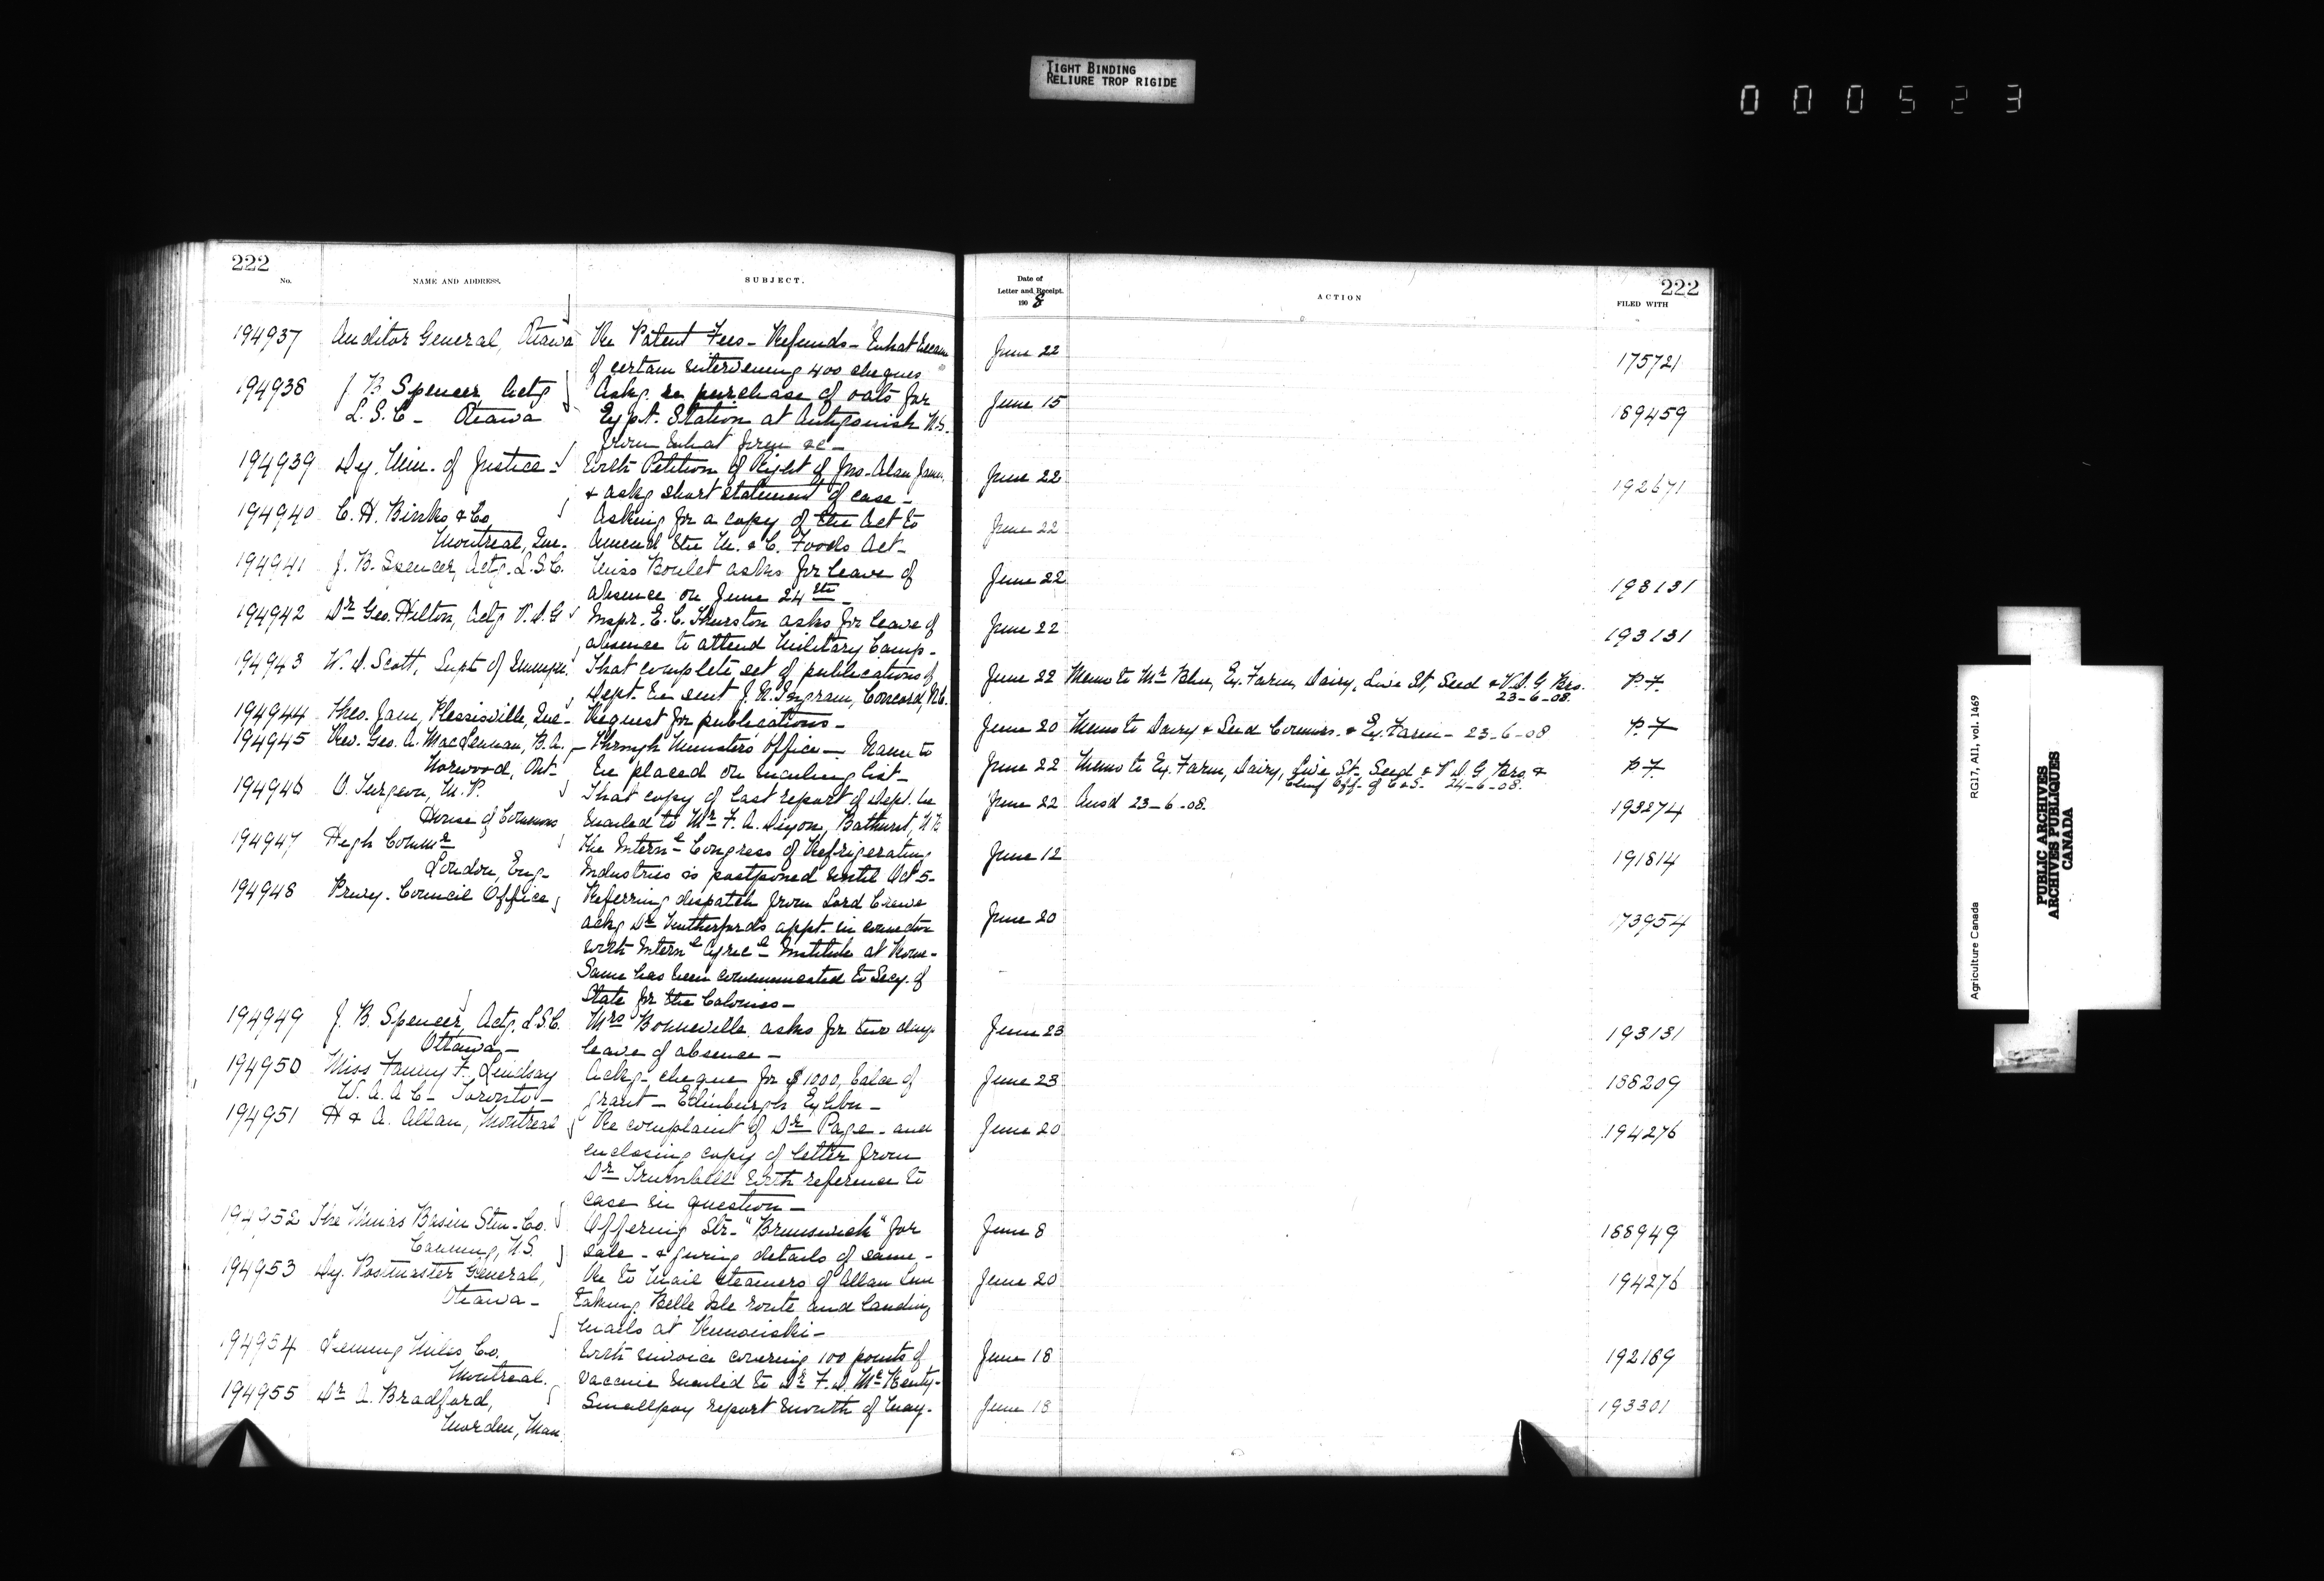 TIGHT BINDING
RELIURE TROP RIGIDE
000523
222
No.
NAME AND ADDRESS.
SUBJECT.
Date of
Letter and Receipt.
1908
ACTION
222
FILED WITH
194937 Auditor General, Ottawa Re Patent Fees - Refunds - What became June 22 175721
of certain intervening 400 cheques
194938 J. B. Spencer, Actg Askg. re purchase of oats for June 15 189459
L.S.C - Ottawa Expt. Station at Antigonish N.S.
from what firm &c -
194939 Dy. Min. of Justice - With Petition of Right of Jno. Alan June 22 192671
& askg short statement of case -
194940 C. H. Binks & Co Asking for a copy of the Act to June 22
Montreal, Que. Amend the M. & C. Foods Act -
194941 J. B. Spencer, Actg. L.S.C. Miss Boulet asks for leave of June 22 193131
absence on June 24th -
194942 Dr Geo. Hilton, Actg V.D.G Inspr. E. C. Thurston asks for leave of June 22 193131
absence to attend Military Camp -
194943 W. D. Scott, Supt of Immign. That complete set of publications of June 22 Memo to Mr Blue, Ex. Farm, Dairy, Live St, Seed & V.D.G Brs. P.F.
Dept. be sent J. N. Ingram, Concord, N.C. 23-6-08.
194944 Theo. Jam, Plessisville, Que - Request for publications - June 20 Memo to Dairy & Seed Commrs. & Ex. Farm - 23-6-08 P.F.
194945 Rev. Geo. A. MacLennan, B.A. - Through Ministers Office - Name to June 22 Memo to Ex. Farm, Dairy, Live St. Seed & V.D.G Brs &
Norwood, Ont - be placed on mailing list - 24-6-08. P.F.
194946 O. Turgeon, M.P. That copy of last report of Dept. be June 22 Ansd 23-6-08. 193274
House of Commons mailed to Mr F. A. Dixon, Bathurst, N.B
194947 High Commr The Internl Congress of Refrigerating June 12 191814
London, Eng - Industries is postponed until Oct 5 -
194948 Privy Council Office Referring dispatch from Lord Crewe June 20 173954
ackg Dr Rutherfords appt. in connection
with Internl Agricl - Institute at Rome -
Same has been communicated to Secy. of
State for the Colonies -
194949 J. B. Spencer, Actg. L.S.C. Mrs Bonneville asks for two days June 23 193131
Ottawa - leave of absence -
194950 Miss Fanny F. Lindsay Ackg - cheque for $1000, balce of June 23 188209
W.A.A.C - Toronto - grant - Edinburgh Exhbn -
194951 H & A. Allan, Montreal Re complaint of Dr Page - and June 20 194276
enclosing copy of letter from
Dr with reference to
case in question -
194952 The Minas Basin Stm. Co. Offering Str. "Brunswick" for June 8 188949
Canning, N.S. sale - & giving details of same -
194953 Dy. Postmaster General, Re to Mail steamers of Allan Line June 20 194276
Ottawa - taking Belle Isle route and landing
mails at Rimouski -
194954 Leeming Miles Co. With invoice covering 100 points of June 18 192169
Montreal. vaccine mailed to Dr F. D. -
194955 Dr A. Bradford, Smallpox report month of May - June 18 193301
Morden, Man.
Agriculture Canada RG17, AII, vol. 1469
PUBLIC ARCHIVES
ARCHIVES PUBLIQUES
CANADA